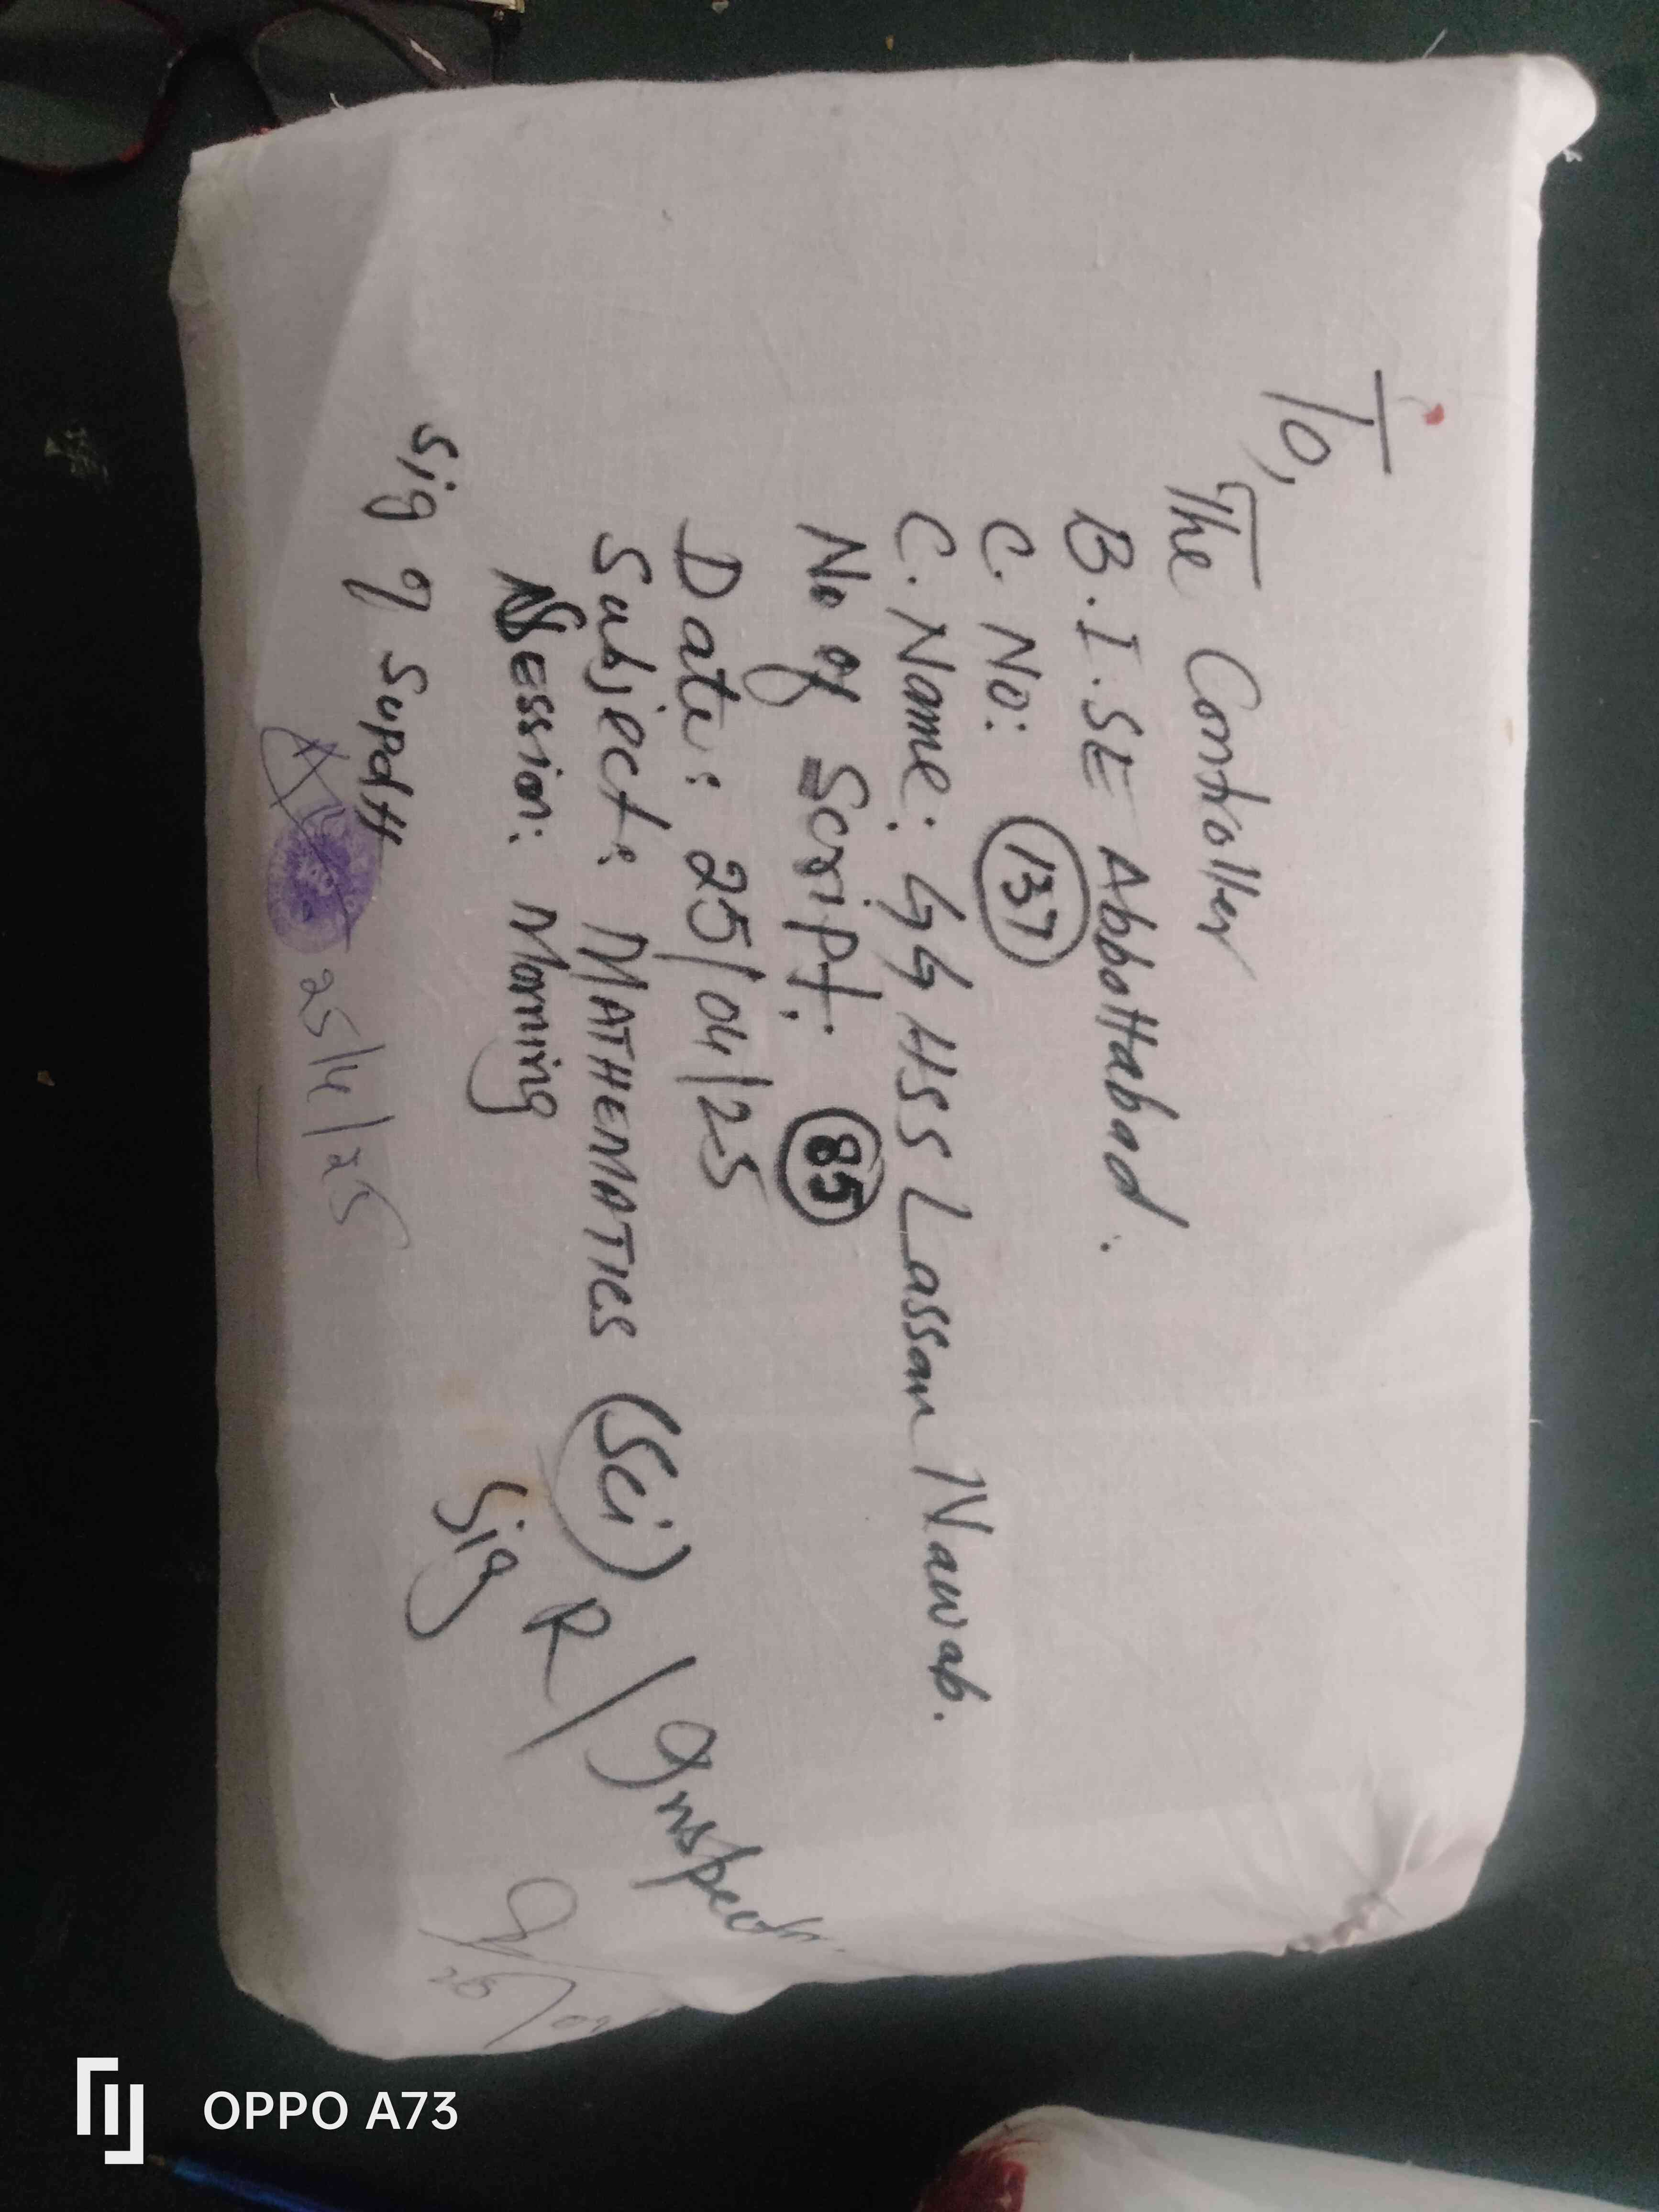 To,
The Controller
B.I.SE Abbottabad.
C. No: 137
C. Name: GGHSS Lassan Nawab.
No of Script: 85
Date: 25/04/25
Subject: MATHEMATICS (Sci)
Session: Morning
Sig of Supdtt
25/4/25
Sig R/Inspector
OPPO A73